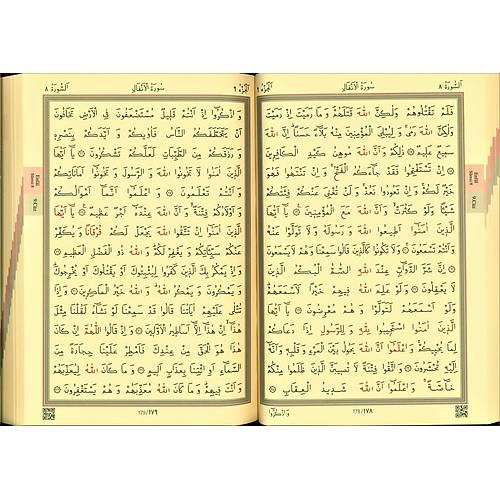 اَلسُّورَةُ ٨
سُورَةُ الْاَنْفَالِ
اَلْجُزْءُ ٩
فَلَمْ تَقْتُلُوهُمْ وَلٰكِنَّ اللّٰهَ قَتَلَهُمْ وَمَا رَمَيْتَ اِذْ رَمَيْتَ
وَلٰكِنَّ اللّٰهَ رَمٰى وَلِيُبْلِيَ الْمُؤْمِنِينَ مِنْهُ بَلَاءً حَسَنًا اِنَّ اللّٰهَ
سَمِيعٌ عَلِيمٌ ۝ ذٰلِكُمْ وَاَنَّ اللّٰهَ مُوهِنُ كَيْدِ الْكَافِرِينَ ۝
اِنْ تَسْتَفْتِحُوا فَقَدْ جَاءَكُمُ الْفَتْحُ وَاِنْ تَنْتَهُوا فَهُوَ
خَيْرٌ لَكُمْ وَاِنْ تَعُودُوا نَعُدْ وَلَنْ تُغْنِيَ عَنْكُمْ فِئَتُكُمْ
شَيْئًا وَلَوْ كَثُرَتْ وَاَنَّ اللّٰهَ مَعَ الْمُؤْمِنِينَ ۝ يَا اَيُّهَا
الَّذِينَ اٰمَنُوا اَطِيعُوا اللّٰهَ وَرَسُولَهُ وَلَا تَوَلَّوْا عَنْهُ
وَاَنْتُمْ تَسْمَعُونَ ۝ وَلَا تَكُونُوا كَالَّذِينَ قَالُوا سَمِعْنَا وَهُمْ لَا يَسْمَعُونَ ۝
اِنَّ شَرَّ الدَّوَابِّ عِنْدَ اللّٰهِ الصُّمُّ الْبُكْمُ الَّذِينَ
لَا يَعْقِلُونَ ۝ وَلَوْ عَلِمَ اللّٰهُ فِيهِمْ خَيْرًا لَاَسْمَعَهُمْ
وَلَوْ اَسْمَعَهُمْ لَتَوَلَّوْا وَهُمْ مُعْرِضُونَ ۝ يَا اَيُّهَا
الَّذِينَ اٰمَنُوا اسْتَجِيبُوا لِلّٰهِ وَلِلرَّسُولِ اِذَا دَعَاكُمْ
لِمَا يُحْيِيكُمْ وَاعْلَمُوا اَنَّ اللّٰهَ يَحُولُ بَيْنَ الْمَرْءِ وَقَلْبِهِ وَاَنَّهُ
اِلَيْهِ تُحْشَرُونَ ۝ وَاتَّقُوا فِتْنَةً لَا تُصِيبَنَّ الَّذِينَ ظَلَمُوا مِنْكُمْ
خَاصَّةً وَاعْلَمُوا اَنَّ اللّٰهَ شَدِيدُ الْعِقَابِ ۝
178/١٧٨
وَاذْكُرُوا
اَلْجُزْءُ ٩
سُورَةُ الْاَنْفَالِ
اَلسُّورَةُ ٨
وَاذْكُرُوا اِذْ اَنْتُمْ قَلِيلٌ مُسْتَضْعَفُونَ فِي الْاَرْضِ تَخَافُونَ
اَنْ يَتَخَطَّفَكُمُ النَّاسُ فَاٰوٰيكُمْ وَاَيَّدَكُمْ بِنَصْرِهِ
وَرَزَقَكُمْ مِنَ الطَّيِّبَاتِ لَعَلَّكُمْ تَشْكُرُونَ ۝ يَا اَيُّهَا
الَّذِينَ اٰمَنُوا لَا تَخُونُوا اللّٰهَ وَالرَّسُولَ وَتَخُونُوا اَمَانَاتِكُمْ
وَاَنْتُمْ تَعْلَمُونَ ۝ وَاعْلَمُوا اَنَّمَا اَمْوَالُكُمْ
وَاَوْلَادُكُمْ فِتْنَةٌ وَاَنَّ اللّٰهَ عِنْدَهُ اَجْرٌ عَظِيمٌ ۝ يَا اَيُّهَا
الَّذِينَ اٰمَنُوا اِنْ تَتَّقُوا اللّٰهَ يَجْعَلْ لَكُمْ فُرْقَانًا وَيُكَفِّرْ
عَنْكُمْ سَيِّـَٔاتِكُمْ وَيَغْفِرْ لَكُمْ وَاللّٰهُ ذُو الْفَضْلِ الْعَظِيمِ ۝
وَاِذْ يَمْكُرُ بِكَ الَّذِينَ كَفَرُوا لِيُثْبِتُوكَ اَوْ يَقْتُلُوكَ اَوْ يُخْرِجُوكَ
وَيَمْكُرُونَ وَيَمْكُرُ اللّٰهُ وَاللّٰهُ خَيْرُ الْمَاكِرِينَ ۝ وَاِذَا
تُتْلٰى عَلَيْهِمْ اٰيَاتُنَا قَالُوا قَدْ سَمِعْنَا لَوْ نَشَاءُ لَقُلْنَا مِثْلَ
هٰذَا اِنْ هٰذَا اِلَّا اَسَاطِيرُ الْاَوَّلِينَ ۝ وَاِذْ قَالُوا اللّٰهُمَّ اِنْ كَانَ
هٰذَا هُوَ الْحَقَّ مِنْ عِنْدِكَ فَاَمْطِرْ عَلَيْنَا حِجَارَةً مِنَ
السَّمَاءِ اَوِ ائْتِنَا بِعَذَابٍ اَلِيمٍ ۝ وَمَا كَانَ اللّٰهُ لِيُعَذِّبَهُمْ
وَاَنْتَ فِيهِمْ وَمَا كَانَ اللّٰهُ مُعَذِّبَهُمْ وَهُمْ يَسْتَغْفِرُونَ ۝
179/١٧٩